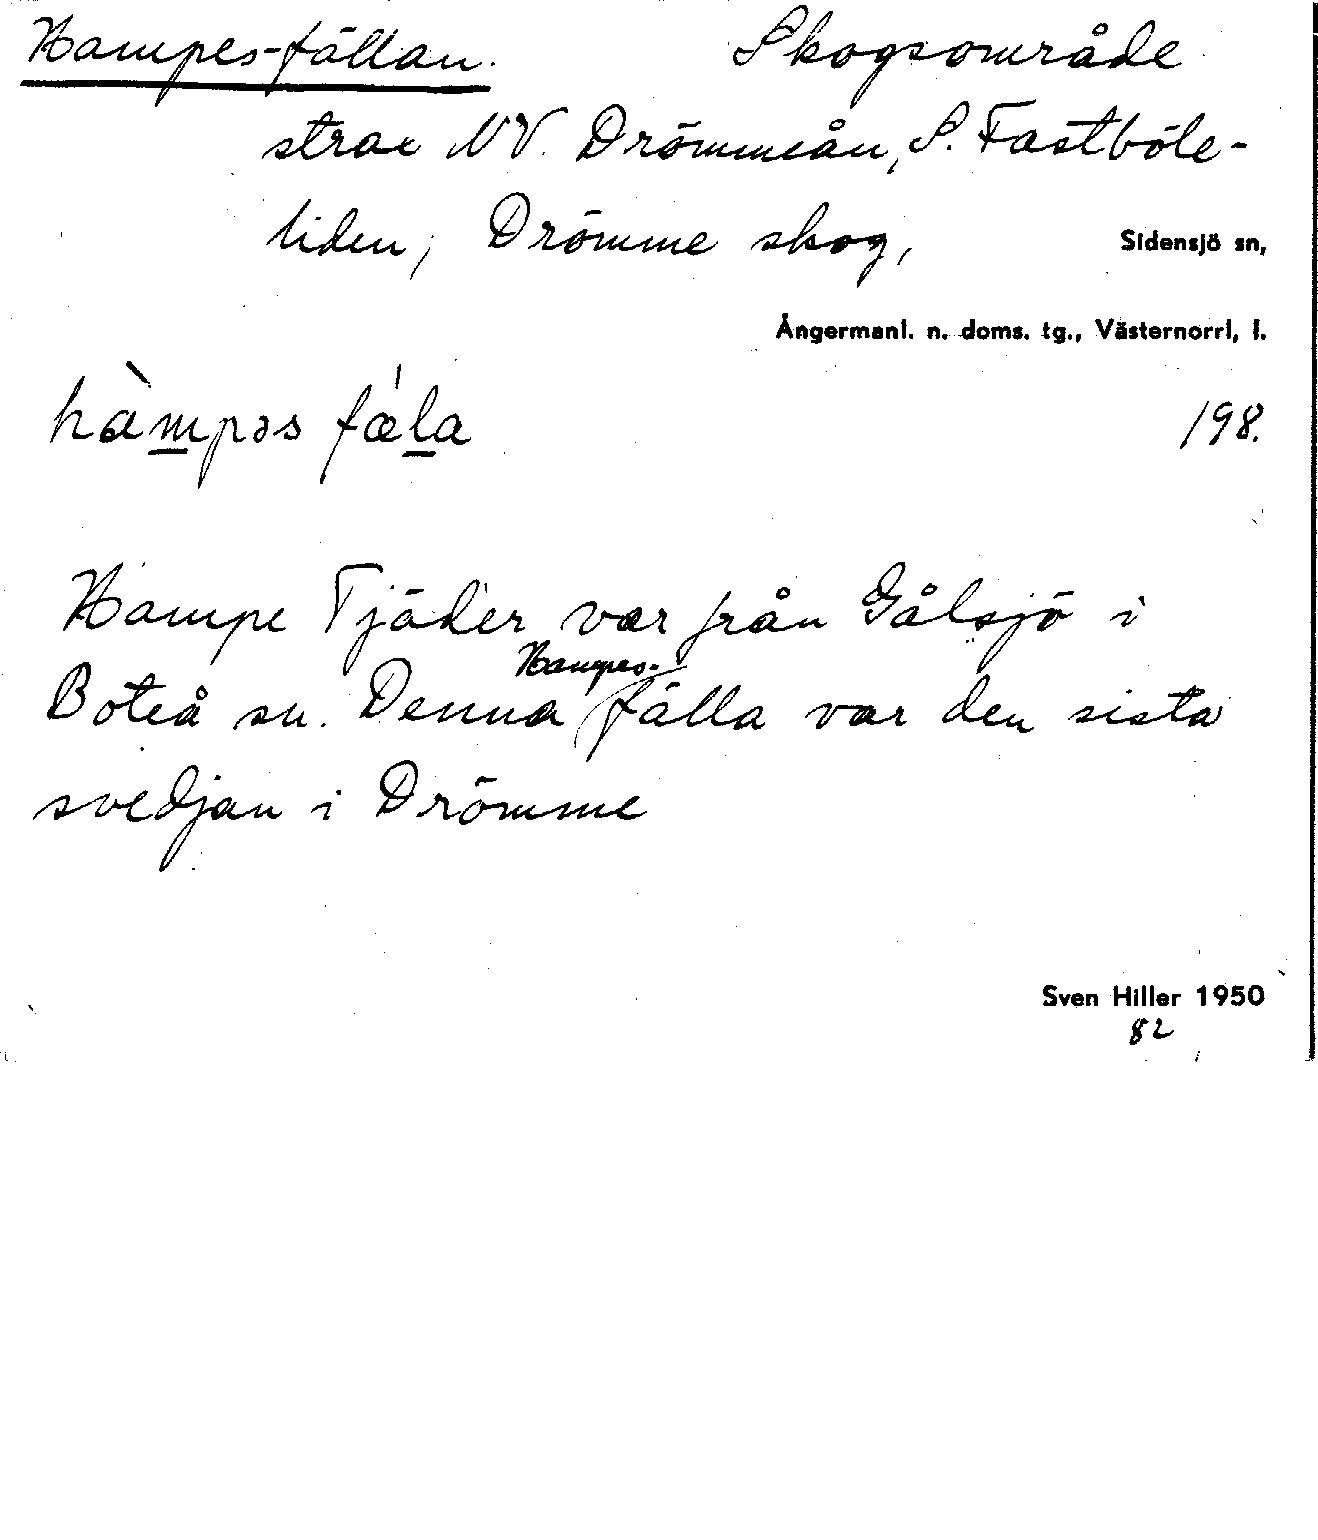 Hampes-fällan. Skogsområde
strax NV. Drömmeån, S. Fastböle-
liden, Drömme skog, Sidensjö sn,
Ångermanl. n. doms. tg., Västernorrl, l.
hàmpəs fæ'la 198.
Hampe Tjäder var från Gålsjö i
Boteå sn. Denna Hampes-fälla var den sista
svedjan i Drömme
Sven Hiller 1950
82